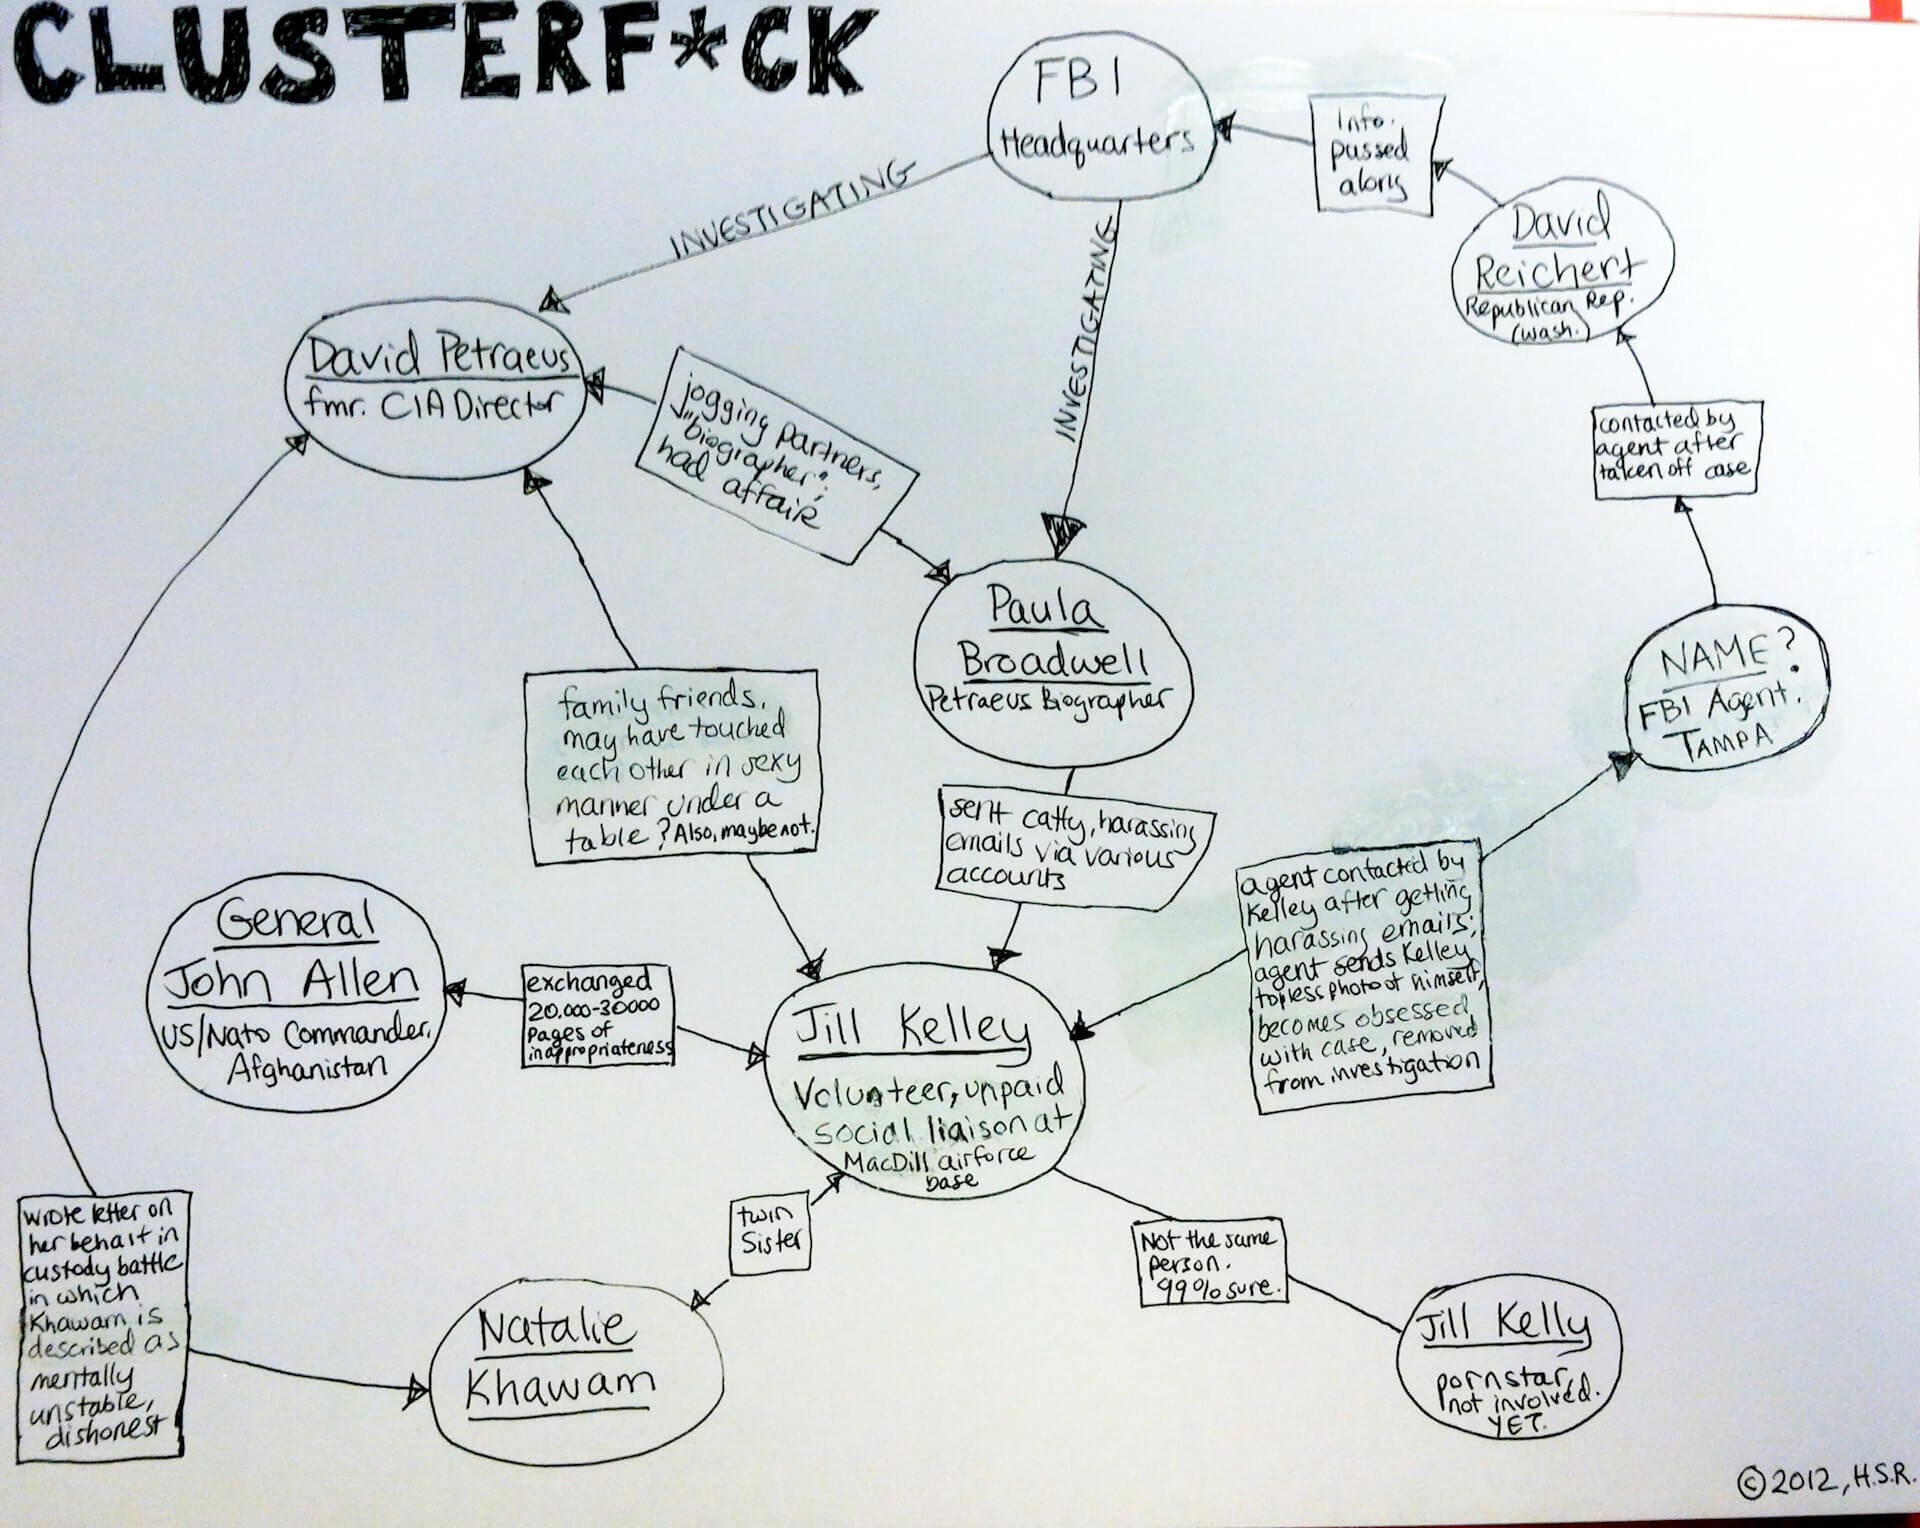 CLUSTERF*CK
FBI
Headquarters
Info.
passed
along
David
Reichert
Republican Rep.
(wash.)
INVESTIGATING
INVESTIGATING
David Petraeus
fmr. CIA Director
jogging partners,
"biographer",
had affair
contacted by
agent after
taken off case
Paula
Broadwell
Petraeus Biographer
NAME?
FBI Agent.
TAMPA
family friends.
may have touched
each other in sexy
manner under a
table? Also, maybe not.
sent catty, harassing
emails via various
accounts
agent contacted by
Kelley after getting
harassing emails;
agent sends Kelley
topless photo of himself,
becomes obsessed
with case, removed
from investigation
General
John Allen
US/Nato Commander,
Afghanistan
exchanged
20,000-30000
pages of
inappropriateness
Jill Kelley
Volunteer, unpaid
social liaison at
MacDill airforce
base
wrote letter on
her behalf in
custody battle
in which
Khawam is
described as
mentally
unstable,
dishonest
twin
Sister
Not the same
person.
99% sure.
Natalie
Khawam
Jill Kelly
pornstar,
not involved.
YET.
©2012, H.S.R.